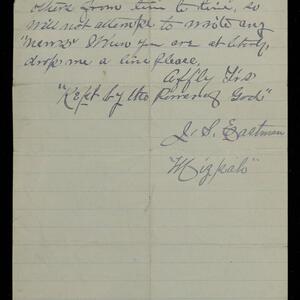 others from time to time, so
will not attempt to write any
"news". When you are at liberty
drop me a line please.
Affly Yrs
"Kept by the Power of God"
J. S. Eastman
"Mizpah"